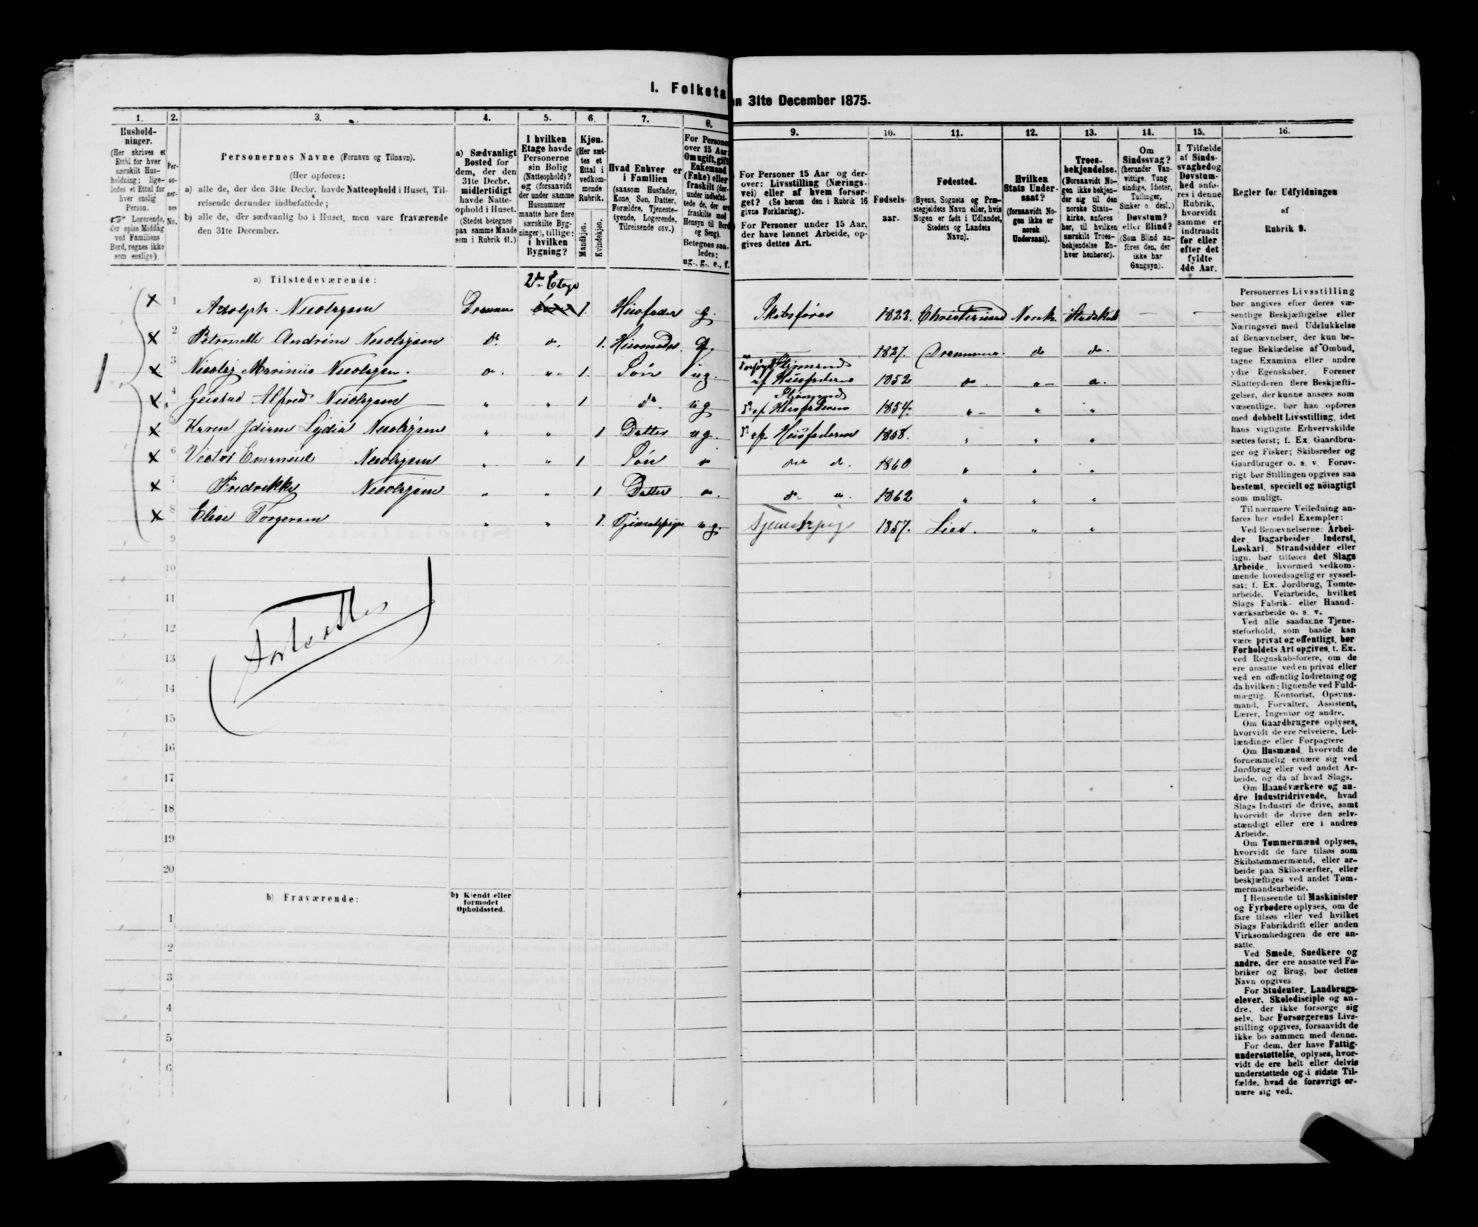 I. Folketæ
en 31te December 1875.
1.
2.
3.
4.
5.
6.
7.
8.
9.
10.
11.
12.
13.
14.
15.
16.
Hushold-
ninger.
(Her skrives et
Ettal for hver
særskilt Hus-
holdning; lige-
ledes et Ettal for
hver enslig
Person.
☞ Logerende,
der spise Middag
ved Familiens
Bord, regnes ikke
som enslige).
Per-
so-
ner-
nes
No.
Personernes Navne (Fornavn og Tilnavn).
(Her opføres:
a) alle de, der den 31te Decbr. havde Natteophold i Huset, Til-
reisende derunder indbefattede;
b) alle de, der sædvanlig bo i Huset, men vare fraværende
den 31te December.
a) Sædvanligt
Bosted for
dem, der den
31te Decbr.
midlertidigt
havde Natte-
ophold i Huset.
(Stedet betegnes
paa samme Maade
som i Rubrik 11.)
I hvilken
Etage havde
Personerne
sin Bolig
(Natteophold)?
og (forsaavidt
der under samme
Husnummer
maatte høre flere
særskilte Byg-
ninger), tillige:
i hvilken
Bygning?
Kjøn.
(Her sæt-
tes et
Ettal i
vedkom-
mende
Rubrik.
Mandkjøn.
Kvindekjøn.
Hvad Enhver er
i Familien
(saasom Husfader,
Kone, Søn, Datter,
Forældre, Tjeneste-
tyende, Logerende,
Tilreisende osv.)
For Persone
over 15 Aar
Om ugift, gift
Enkemand
(Enke) eller
fraskilt (der-
under indbefat-
tede de, der ere
fraskilte med
Hensyn til Bord
og Seng).
Betegnes saa-
ledes:
ug., g., e., f.
For Personer 15 Aar og der-
over: Livsstilling (Nærings-
vei) eller af hvem forsør-
get? (Se herom den i Rubrik 16
givne Forklaring).
For Personer under 15 Aar,
der have lønnet Arbeide, op-
gives dettes Art.
Fødsels-
aar.
Fødested.
(Byens, Sognets og Præ-
stegjeldets Navn eller, hvis
Nogen er født i Udlandet,
Stedets og Landets
Navn).
Hvilken
Stats Under-
saat?
(forsaavidt No-
gen ikke er
norsk
Undersaat).
Troes-
bekjendelse.
(Forsaavidt No-
gen ikke bekjen-
der sig til den
norske Stats-
kirke, anføres
her, til hvilken
særskilt Troes-
bekjendelse En-
hver henhører).
Om
Sindssvag?
(herunder Van-
vittige, Tung-
sindige, Idioter,
Tullinger,
Sinker o. desl.)
Døvstum?
eller Blind?
(Som Blind an-
føres den, der
ikke har
Gangsyn).
I Tilfælde
af Sinds-
svaghed og
Døvstum-
hed anfø-
res i denne
Rubrik,
hvorvidt
samme er
indtraadt
før eller
efter det
fyldte
4de Aar.
Regler for Udfyldningen
af
Rubrik 9.
a) Tilstedeværende:
2den Etage
1 Adolph Nicolaysen Drammen 1 Husfader g. Skibsfører 1823 Christiansand Norsk Statskirk — —
2 Petronelle Andrine Nicolaysen do do 1. Husmoder g. 1827. Drammen do do
3 Nicolay Marinius Nicolaysen. do " 1. Søn ug. forsørget af Husfaderen 1852 do "
4 Gustav Alfred Nicolaysen " " 1 do ug do af Husfaderen 1854. " " "
Karen Idiana Lydia Nicolaysen " " 1 Datter ug. do af Husfaderen 1858. " " "
6 Victor Nicolaysen " " 1 Søn do do 1860 " " "
7 Fredrikke Nicolaysen " " 1 Datter do 1862 " " "
8 Elise Torgersen " " 1. Tjenestepige ug. Tjenestepige 1857. Lier. " "
9
10
11
12
13
14
15
16
17
18
19
20
b) Fraværende:
b) Kjendt eller
formodet
Opholdssted.
1
2
3
4
5
6
Personernes Livsstilling
bør angives efter deres væ-
sentlige Beskjæftigelse eller
Næringsvei med Udelukkelse
af Benævnelser, der kun be-
tegne Beklædelse af Ombud,
tagne Examina eller andre
ydre Egenskaber. Forener
Skatteyderen flere Beskjæfti-
gelser, der kunne ansees som
væsentlige, bør han opføres
med dobbelt Livsstilling, idet
hans vigtigste Erhvervskilde
sættes først; f. Ex. Gaardbru-
ger og Fisker; Skibsreder og
Gaardbruger o. s. v. Forøv-
rigt bør Stillingen opgives saa
bestemt, specielt og nøiagtigt
som muligt.
Til nærmere Veiledning an-
føres her endel Exempler:
Ved Benævnelserne: Arbei-
der, Dagarbeider, Inderst,
Løskarl, Strandsidder eller
lign. bør tilføies det Slags
Arbeide, hvormed vedkom-
mende hovedsagelig er syssel-
sat; f. Ex. Jordbrug, Tomte-
arbeide, Veiarbeide, hvilket
Slags Fabrik- eller Haand-
værksarbeide o. s. v.
Ved alle saadanne Tjene-
steforhold, som baade kan
være privat og offentligt, bør
Forholdets Art opgives, f. Ex.
ved Regnskabsførere, om de
ere ansatte ved en privat eller
ved en offentlig Indretning og
da hvilken; lignende ved Fuld-
mægtig, Kontorist, Opsyns-
mand, Forvalter, Assistent,
Lærer, Ingeniør og andre.
Om Gaardbrugere oplyses,
hvorvidt de ere Selveiere, Lei-
lændinge eller Forpagtere
Om Husmænd, hvorvidt de
fornemmelig ernære sig ved
Jordbrug eller ved andet Ar-
beide, og da af hvad Slags.
Om Haandværkere og an-
dre Industridrivende, hvad
Slags Industri de drive, samt
hvorvidt de drive den selv-
stændigt eller ere i andres
Arbeide.
Om Tømmermænd oplyses,
hvorvidt de fare tilsøs som
Skibstømmermænd, eller ar-
beide paa Skibsværfter, eller
beskjæftiges ved andet Tøm-
mermandsarbeide.
I Henseende til Maskinister
og Fyrbødere oplyses, om de
fare tilsøs eller ved hvilket
Slags Fabrikdrift eller anden
Virksomhedsgren de ere an-
satte.
Ved Smede, Snedkere og
andre, der ere ansatte ved Fa-
briker og Brug, bør dettes
Navn opgives
For Studenter, Landbrugs-
elever, Skoledisciple og an-
dre, der ikke forsørge sig
selv, bør Forsørgerens Livs-
stilling opgives, forsaavidt de
ikke bo sammen med denne.
For dem, der have Fattig-
understøttelse, oplyses, hvor-
vidt de ere helt eller delvis
understøttede og i sidste Til-
fælde, hvad de forøvrigt er-
nære sig ved.